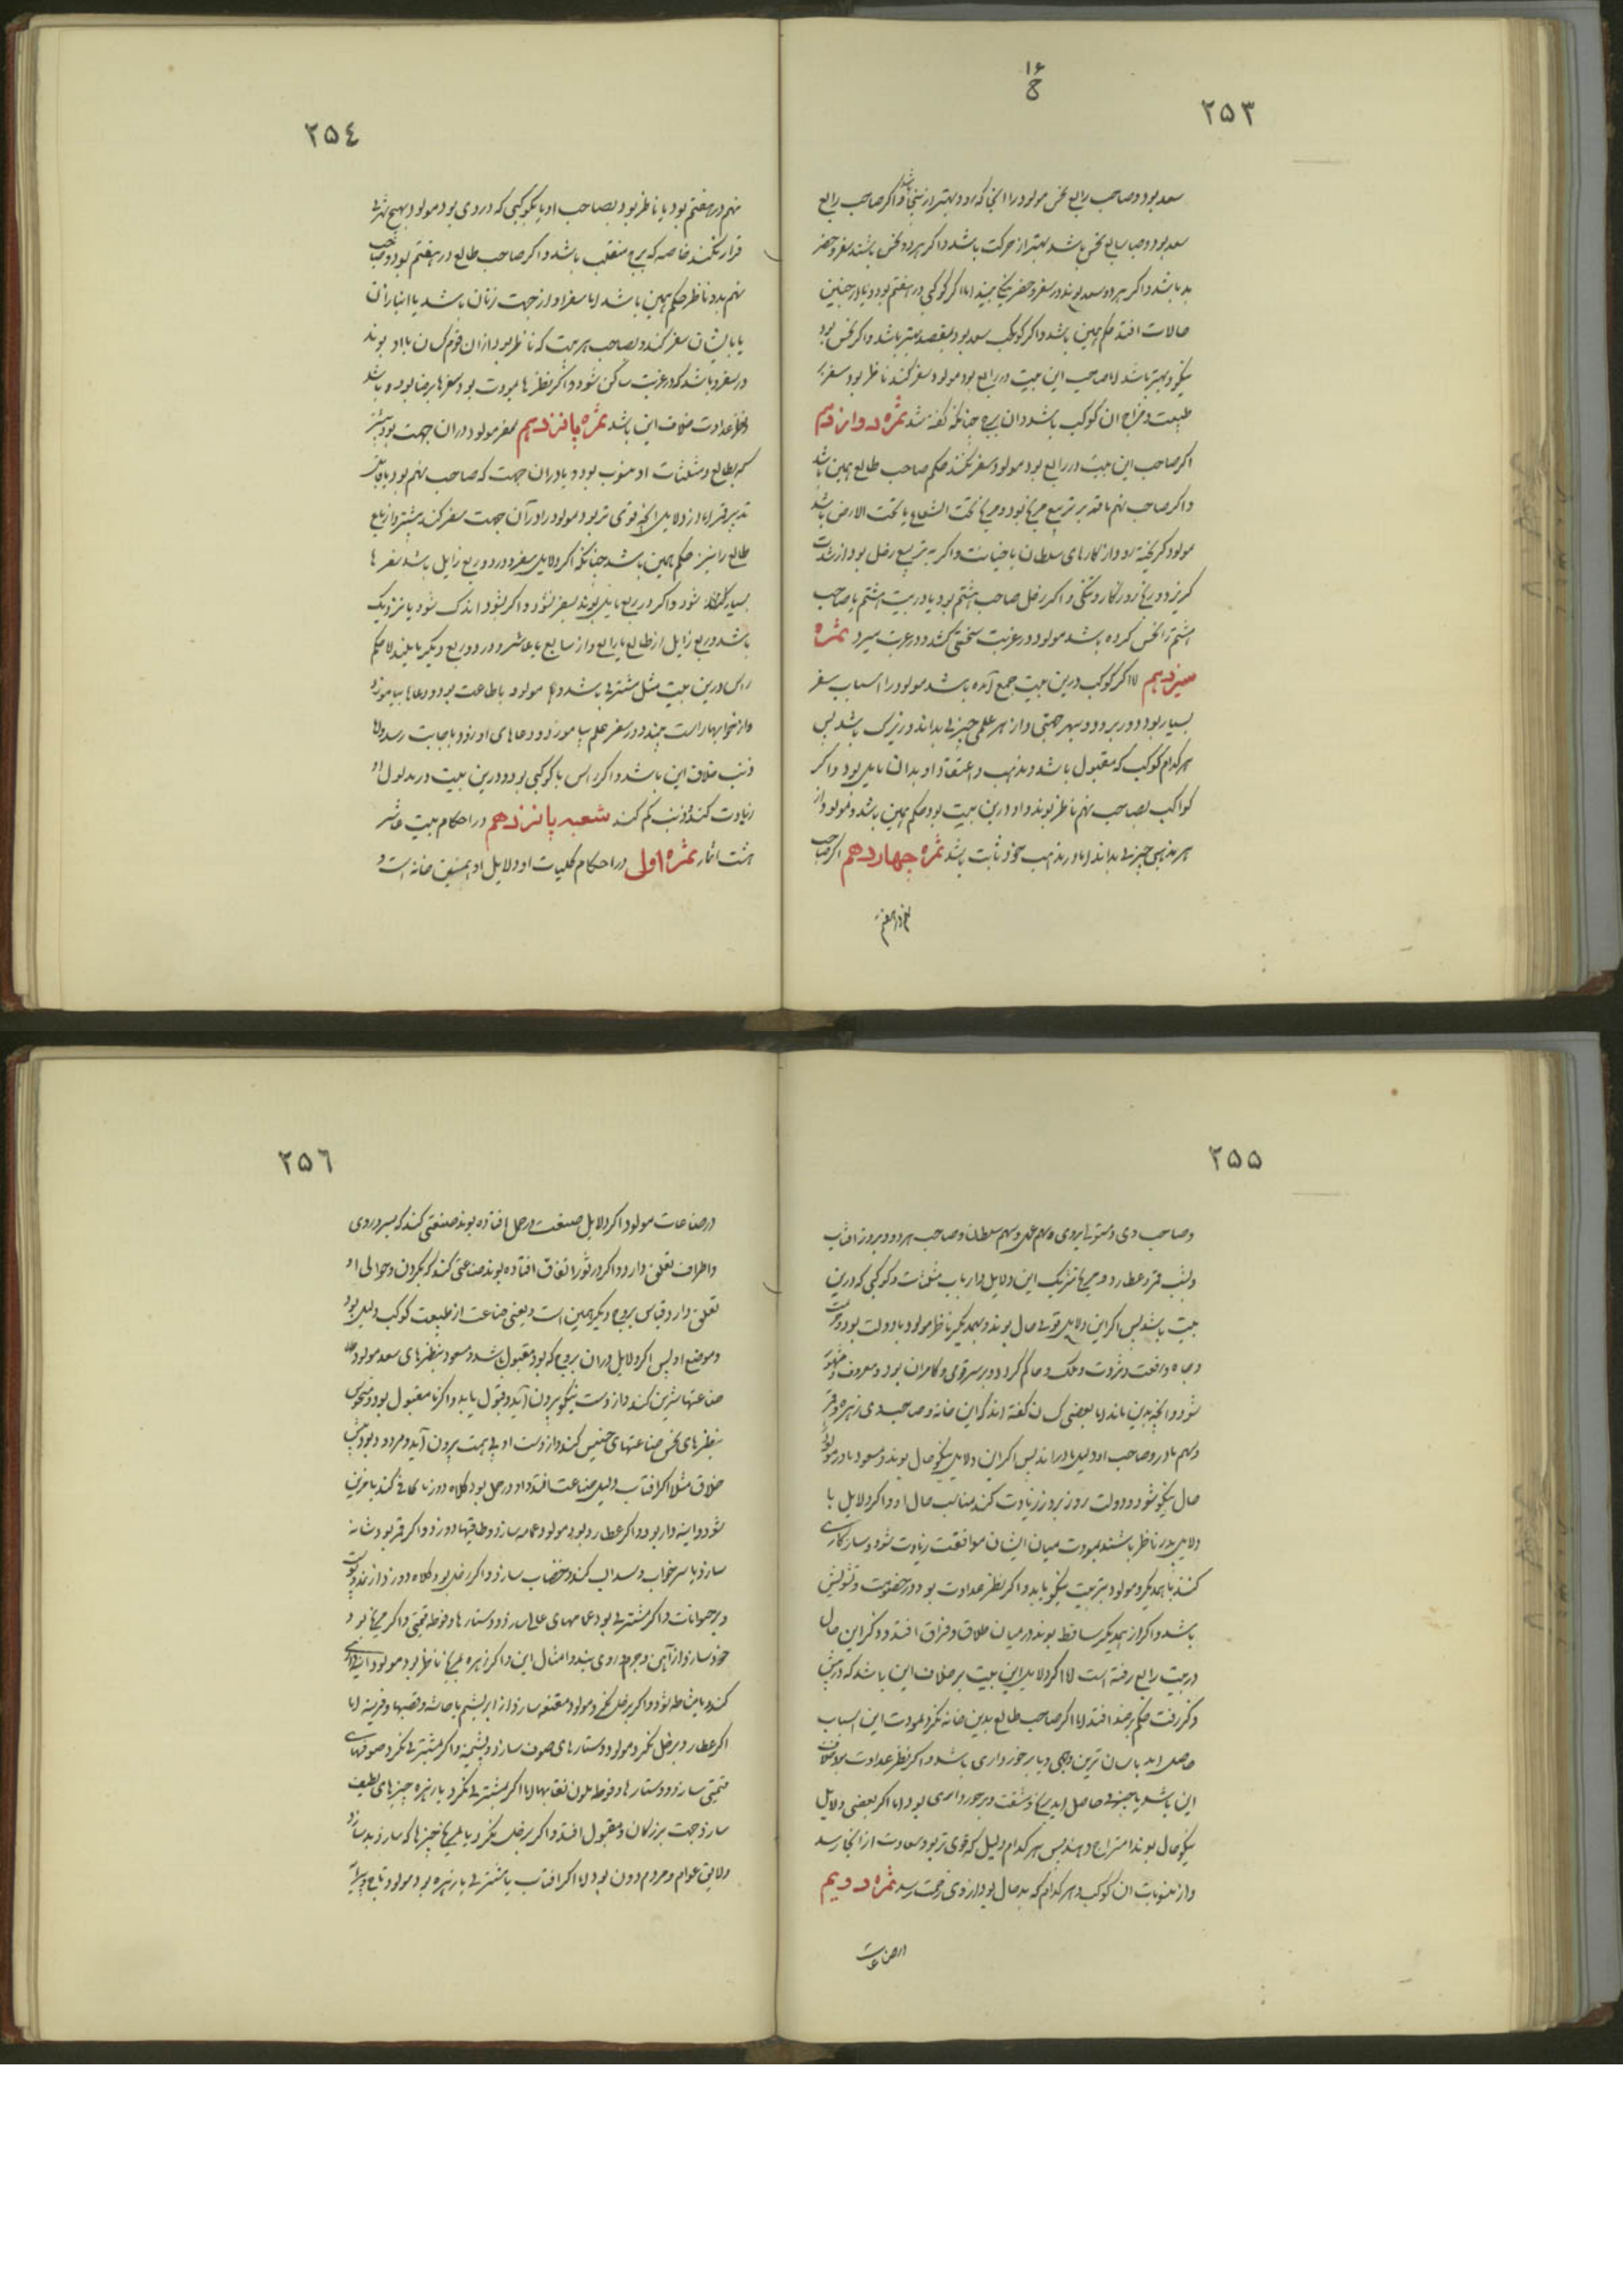 ۲۵۳
۱۶
ح
سعد بود و صاحب رابع نحس مولود را آنجا که رود بهتر از اینجا باشد و اکر صاحب رابع
سعد بود و صاحب سابع نحس باشد بهتر از حرکت باشد و اکر هر دو نحس باشند سفر و حضر
بد باشد و اکر هر دو سعد بوند در سفر و حضر نیکی بیند اما اکر کوکبی در هفتم بود و یا در چنین
حالات افتد حکم همین باشد و اکر کوکب سعد بود بمقصد بهتر باشد و اکر نحس بود
نیکو و بهتر باشد اما صاحب این بیت در رابع بود مولود سفر کند ناظر بود سفر بر
طبیعت و مزاج آن کوکب باشد و آن برج چنانکه کفته شد ثمره دوازدهم
اکر صاحب این بیت در رابع بود مولود سفر نکند حکم صاحب طالع همین باشد
و اکر صاحب نهم یا قمر بر تربیع مریخ بود و مریخ تحت الشعاع یا تحت الارض باشد
مولود کریخته رود از کارهای سلطان یا خیانت و اکر به تربیع زحل بود از شدت
کریزد و رنج روزکار و تنکی و اکر زحل صاحب هشتم بود یا در بیت هشتم یا صاحب
هشتم را نحس کرده باشد مولود در غربت سختی کشد و در غربت میرد ثمره
سیزدهم اما اکر کوکب درین بیت جمع آمده باشد مولود را اسباب سفر
بسیار بود و در بر دود و بهر جهتی و از هر علمی چیزی بداند و زیرک باشد پس
هر کدام کوکب که مقبول باشد و مذهب و اعتقاد او بدان مایل بود و اکر
کواکب بصاحب نهم ناظر بوند و او درین بیت بود حکم همین باشد و مولود از
هر مذهبی چیزی بداند اما در مذهب خود ثابت باشد ثمره چهاردهم اکر صاحب
۲۵٤
نهم در هفتم بود یا ناظر بود بصاحب او یا بکوکبی که در وی بود مولود بهیچ شهری
قرار نکند خاصه که برج منقلب باشد و اکر صاحب طالع در هفتم بود و صاحب
نهم بدو ناظر حکم همین باشد اما سفر او از جهت زنان باشد یا انبازان
یا با ایشان سفر کند و بصاحب هر بیت که ناظر بود از آن قوم کسان با او بوند
در سفر و باشد که در غربت ساکن شود و اکر نظرها بمودت بود سفرها برضا بوده باشد
و نظر عداوت خلاف این باشد ثمره پانزدهم سفر مولود در آن جهت بود بیشتر
که بطالع و مثلثات او منسوب بود و یا در آن جهت که صاحب نهم بود یا بجای
تدبیر قمر اما از دلایل آنچه قوی تر بود مولود را در آن جهت سفر کند بیشتر و از تابع
طالع را نیز حکم همین باشد چنانکه اکر دلایل سفر در دو ربع زایل باشد سفرها
بسیار شود و اکر در ربع مایل بوند سفر نشود و اکر بشود اندک شود یا نزدیک
باشد و ربع زایل از طالع یا رابع و از سابع یا عاشر و در دو ربع دیکر مایلند اما حکم
راس درین بیت مثل مشتری باشد و هم مولود با طاعت بود و دعاها بیاموزد
و از خوابها راست بیند و در سفر علم بیاموزد و دعاهای او زود باجابت رسد و اما
ذنب خلاف این باشد و اکر راس با کوکبی بود درین بیت در مدلول او
زیادت کند و ذنب کم کند شعبه پانزدهم در احکام بیت عاشر
هشت اثمار ثمره اولی در احکام کلیات او و دلایل او این خانه است و
۲۵۵
و صاحب وی و مستولی بروی و سهم عمل و سهم سلطان و صاحب هر دو و بروز آفتاب
و بشب قمر و عطارد و مریخ شریک این دلایل و ارباب مثلثات و کوکبی که درین
بیت باشد پس اکر این دلایل قوی حال بوند و بهمدیکر ناظر مولود با دولت بود و مرتبت
و جاه و رفعت و ثروت و ملک و حاکم کردد و بر سر قومی و کامران بود و معروف و مشهور
شود و آنچه بدین ماند اما بعضی کسان کفته اند که این خانه و صاحب وی و زهره و قمر
و سهم مادر و صاحب او دلیل مادراند پس اکر این دلایل نیکو حال بوند و مسعود مادر مولود
حال نیکو شود و دولت روز بروز زیادت کند بمناسب حال او و اکر دلایل با
دلایل پدر ناظر باشند بمودت میان ایشان موافقت زیادت شود و سازکاری
کنند با همدیکر و مولود تربیت نیکو یابد و اکر نظر عداوت بود در خصومت و تشویش
باشد و اکر از همدیکر ساقط بوند در میان طلاق و فراق افتد و ذکر این حال
در بیت رابع رفته است اما اکر دلایل این بیت بر خلاف این باشد که در پیش
ذکر رفت حکم بر ضد افتد اما اکر صاحب طالع بدین خانه نکرد بمودت این اسباب
حاصل آید باسان ترین وجهی و یا برخورداری باشد و اکر نظر عداوت بود خلاف
این باشد یا چیزی حاصل آید برنج و مشقت و برخورداری بود اما اکر بعضی دلایل
نیکو حال بوند امتزاج دهند پس هر کدام دلیل که قوی تر بود سعادت از آنجا رسد
و از منسوبات آن کوکب و هر کدام که بد حال بود از وی زحمت رسد ثمره دویم
در صناعات
۲۵٦
در صناعات مولود اکر دلایل صنعت در حمل افتاده بوند صنعتی کند که بسر و روی
و اطراف تعلق دارد و اکر در ثور اتفاق افتاده بوند صناعتی کند که بکردن و حوالی او
تعلق دارد و قیاس بروج دیکر همین است و یعنی صناعت از طبیعت کوکب دلیل بود
و موضع او پس اکر دلایل در آن بروج که بود مقبول باشد و مسعود بنظرهای سعد مولود
صناعتها شریف کند و از دست نیکو بیرون آید و قبول یابد و اکر نا مقبول بود و منحوس
بنظرهای نحس صناعتهای خسیس کند و از دست او بی همت بیرون آید و مردود بود
خلاق مثلا اکر آفتاب دلیل صناعت افتد و او در حمل بود کلاه دوز یا کمانی کند یا مزین
شود و اینه دار بود و اکر عطارد بود مولود عمامه سازد و طاقیها دوزد و اکر قمر بود شانه
سازد یا سرخاب و سفیداب کند و خضاب سازد و اکر زحل بود کلاه دوزد از نمد و پوست
و بر حیوانات و اکر مشتری بود عمامهای عالی سازد و دستارها و فوطه قیمتی و اکر مریخ بود
خود سازد از آهن و جرم و روی بند و امثال این و اکر زهره بمریخ ناظر بود مولود
کند و یا مشاطه شود و اکر بزحل نکرد مولود مقنعه سازد از ابریشم با حاشیه و قصبها و قرینه اما
اکر عطارد بزحل نکرد مولود دستارهای صوف سازد و پشمینه و اکر بمشتری نکرد صوفهای
قیمتی سازد و دستارها و فوطه ملون نقابها اما اکر بمشتری نکرد یا بزهره چیزهای لطیف
سازد جهت بزرکان و مقبول افتد و اکر بزحل نکرد یا بمریخ چیزها که سازد بد سازد
و لایق عوام و مردم دون بود اما اکر آفتاب یا مشتری یا زهره بود مولود تاج